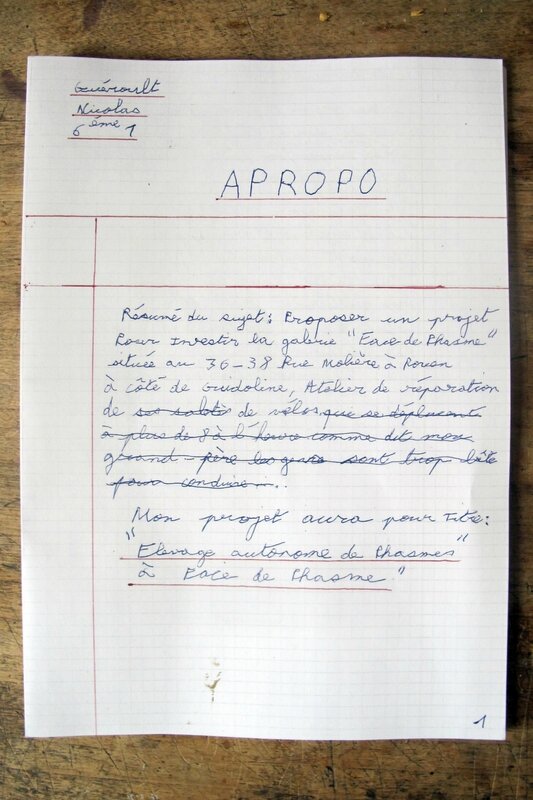 Guérault
Nicolas
6ème 1
APROPO
Résumé du sujet: Proposer un projet
Pour Investir la galerie "Face de Phasme"
située au 36-38 Rue Molière à Rouen
à côté de Guidoline, Atelier de réparation
de ses saletés de vélos que se déplacent
à plus de 8 à l'heure comme dit mon
grand-père les gens sont trop bête
pour conduire...
Mon projet aura pour Titre:
"Elevage autonome de Phasmes"
à Face de Phasme"
1